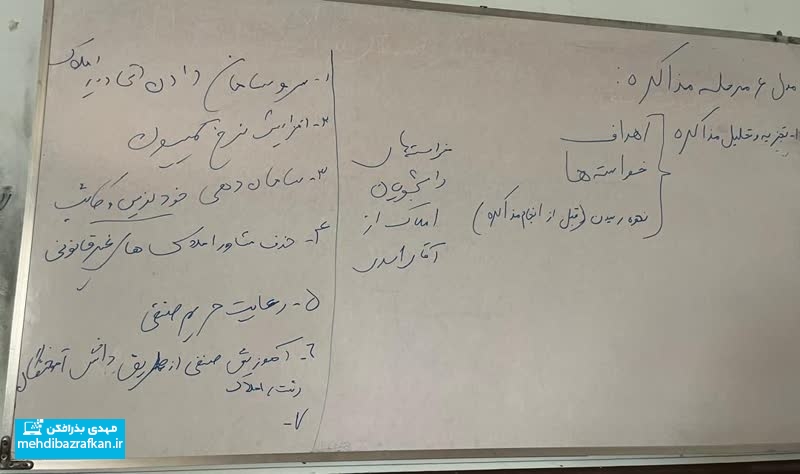 مدل ۶ مرحله مذاکره:
۱- تجزیه و تحلیل مذاکره
اهداف
خواسته ها
بهره بردن (قبل از انجام مذاکره)
خواسته‌های
دانشجویان
املاک از
آقای اسدی
۱- سر و سامان دادن اتحادیه املاک
۲- افزایش نرخ کمیسیون
۳- سامان دهی خودنویس و کاتب
۴- حذف مشاور املاک های غیرقانونی
۵- رعایت حریم صنفی
۶- آموزش صنفی از طریق دانش آموختگان
رشته املاک
۷-
مهدی بذرافکن
mehdibazrafkan.ir